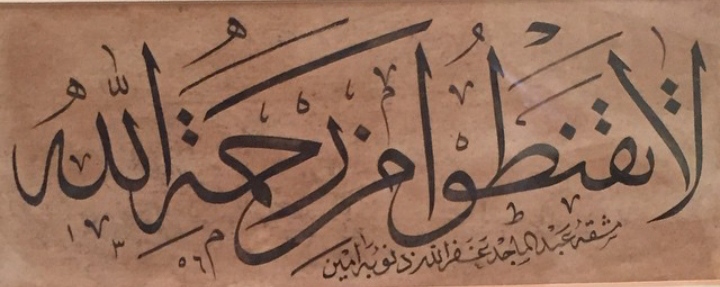 لا تقنطوا من رحمة الله
مشقه عبد الماجد غفر الله ذنوبه آمين
١٣٥٦